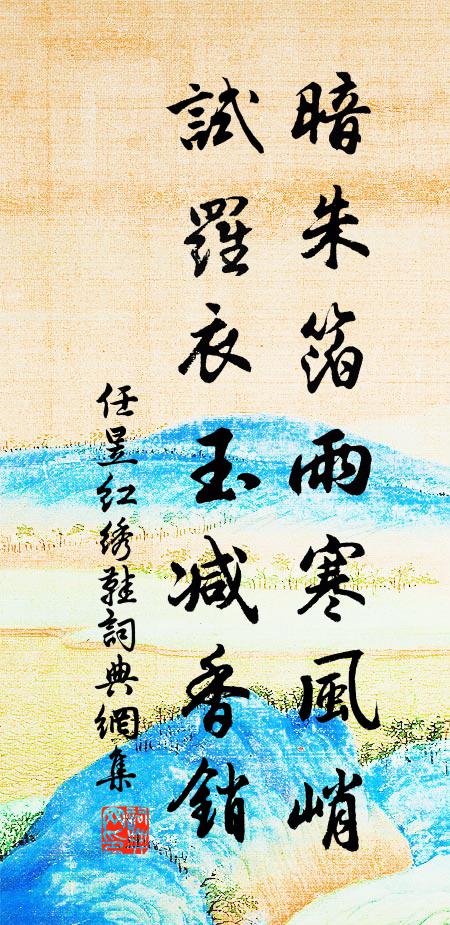 暗朱箔雨寒風峭
試羅衣玉減香銷
任昱红绣鞋詞典網集